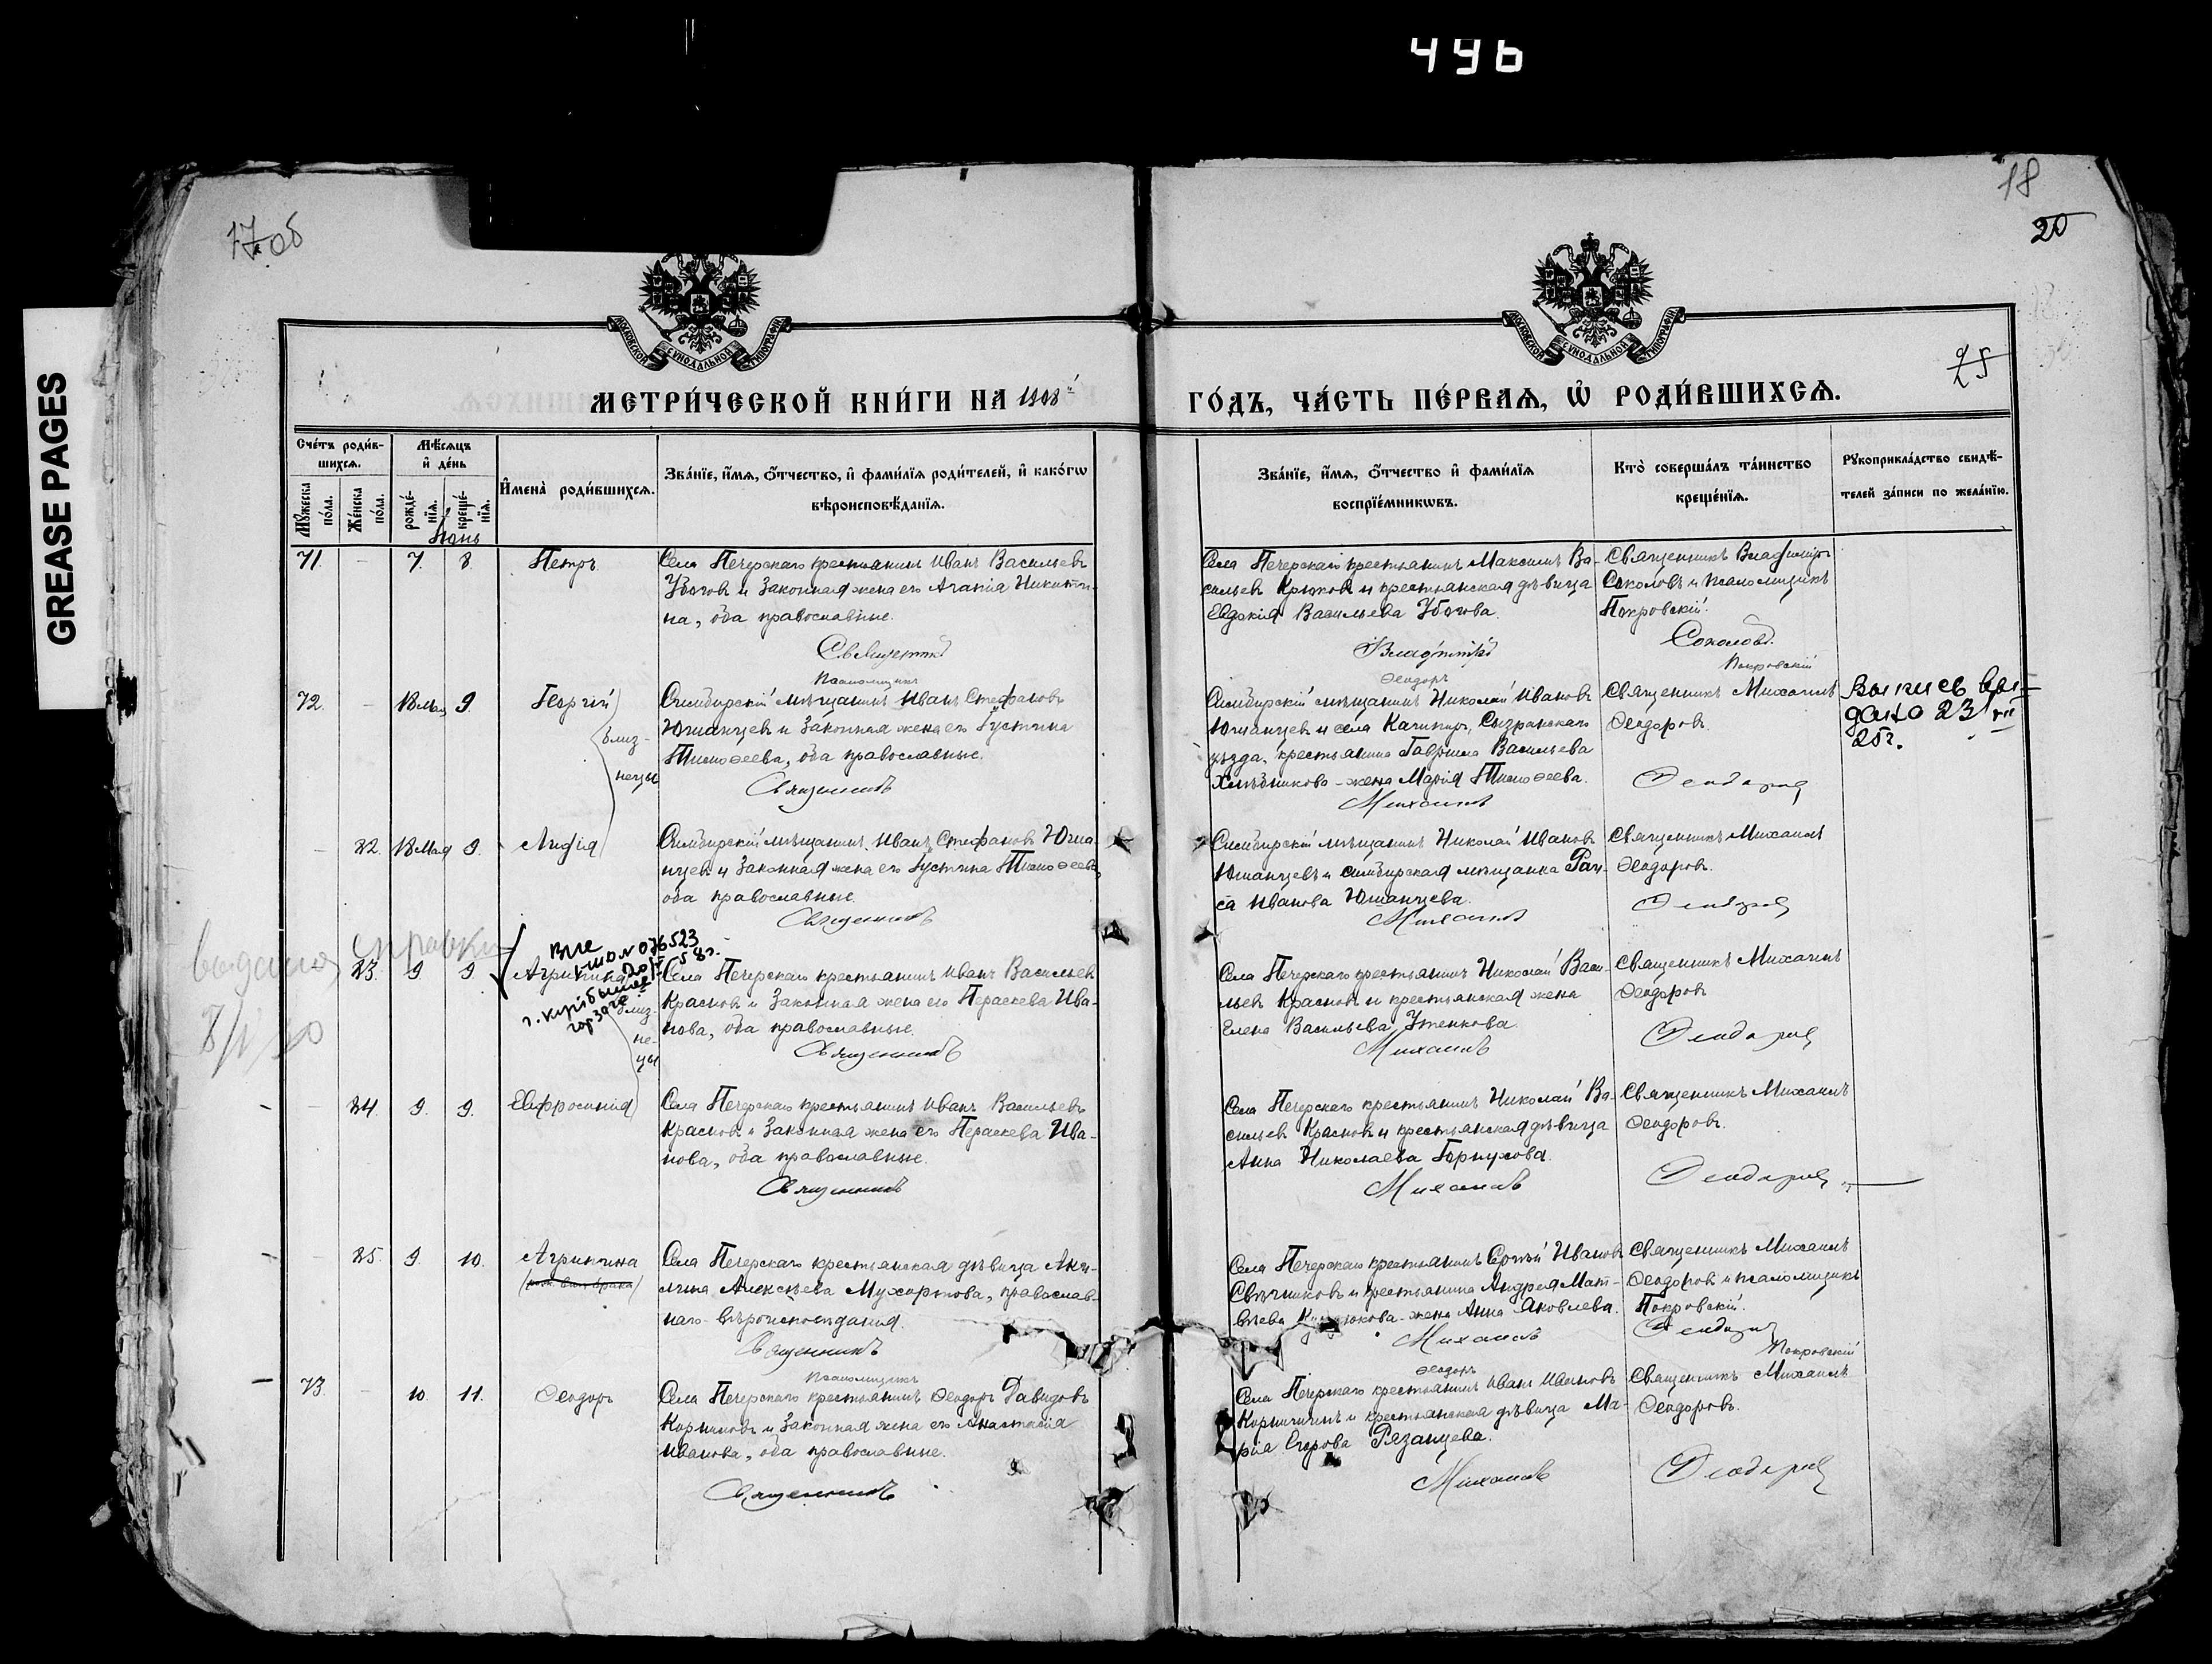 496
GREASE PAGES
17об
18
20
25
МОСКОВСКОЙ СѴНОДАЛЬНОЙ ТИПОГРАФІИ
МОСКОВСКОЙ СѴНОДАЛЬНОЙ ТИПОГРАФІИ
МЕТРИ́ЧЕСКОЙ КНИ́ГИ НА 1908й
ГО́ДЪ, ЧА́СТЬ ПЕ́РВАѦ, Ѡ҆ РОДИ́ВШИХСѦ.
Сче́тъ роди́в-
шихсѧ.
Мѣ́сѧцъ
и҆ де́нь
Мꙋ́жеска по́ла.
Же́нска по́ла.
рожде́-
нїѧ.
креще́-
нїѧ.
И҆мена̀ роди́вшихсѧ.
Зва́нїе, и҆́мѧ, ѻ҆́тчество, и҆ фами́лїѧ роди́телей, и҆ како́гѡ
вѣроисповѣ́данїѧ.
Зва́нїе, и҆́мѧ, ѻ҆́тчество и҆ фами́лїѧ
воспрїе́мникѡвъ.
Кто̀ соверша́лъ та́инство
креще́нїѧ.
Рꙋкоприкла́дство свидѣ́-
телей за́писи по жела́нїю.
Іюнь
71. - 7. 8. Петръ
Села Печерскаго крестьянинъ Иванъ Васильевъ
Убоговъ и законная жена его Агапія Никити-
на, оба православные.
Села Печерскаго крестьянинъ Максимъ Ва-
сильевъ Крюковъ и крестьянская дѣвица
Евдокія Васильева Убогова.
Священникъ Владимиръ
Соколовъ и псаломщикъ
Покровскій.
Священникъ
Владимиръ
Соколовъ.
Псаломщикъ
Ѳеодоръ
Покровскій
72. - 18 Мая 9. Георгій
близ-
нецы
Симбирскій мѣщанинъ Иванъ Стефановъ
Юманцевъ и законная жена его Іустина
Тимоѳеева, оба православные.
Священникъ
Симбирскій мѣщанинъ Николай Ивановъ
Юманцевъ и села Качимъ, Сызранскаго
уѣзда, крестьянина Гавріила Васильева
Хлѣбникова - жена Марія Тимоѳеева.
Михаилъ
Священникъ Михаилъ
Ѳеодоровъ.
Ѳеодоровъ
Выпись вы-
дана 23/VII
25г.
- 22. 18 Мая 9. Лидія
Симбирскій мѣщанинъ Иванъ Стефановъ Юма-
нцевъ и законная жена его Іустина Тимоѳеева,
оба православные.
Священникъ
Симбирскій мѣщанинъ Николай Ивановъ
Юманцевъ и симбирская мѣщанка Раи-
са Иванова Юманцева.
Михаилъ
Священникъ Михаилъ
Ѳеодоровъ.
Ѳеодоровъ
выдана справка
№ 076523
58г.
г. Куйбышев
горзагс
23. 9 9. Агрипина
близ-
не-
цы
Села Печерскаго крестьянинъ Иванъ Васильевъ
Красновъ и законная жена его Параскева Ива-
нова, оба православные.
Священникъ
Села Печерскаго крестьянинъ Николай Васи-
льевъ Красновъ и крестьянская жена
Елена Васильева Утенкова.
Михаилъ
Священникъ Михаилъ
Ѳеодоровъ
Ѳеодоровъ
- 24. 9. 9. Евфросинія
Села Печерскаго крестьянинъ Иванъ Васильевъ
Красновъ и законная жена его Параскева Ива-
нова, оба православные.
Священникъ
Села Печерскаго крестьянинъ Николай Ва-
сильевъ Красновъ и крестьянская дѣвица
Анна Николаева Горнухова.
Михаилъ
Священникъ Михаилъ
Ѳеодоровъ.
Ѳеодоровъ
- 25. 9. 10. Агрипина
Села Печерскаго крестьянская дѣвица Аки-
лина Алексѣева Мухортова, православ-
наго вѣроисповѣданія.
Священникъ
Села Печерскаго крестьянинъ Сергѣй Ивановъ
Свѣчниковъ и крестьянина Андрея Мат-
вѣева жена Анна Яковлева.
Михаилъ
Священникъ Михаилъ
Ѳеодоровъ и псаломщикъ
Покровскій.
Ѳеодоровъ
Псаломщикъ
Ѳеодоръ
Покровскій
73. - 10. 11. Ѳеодоръ
Села Печерскаго крестьянинъ Ѳеодоръ Давидовъ
Корниловъ и законная жена его Анастасія
Иванова, оба православные.
Священникъ
Села Печерскаго крестьянинъ Иванъ Ивановъ
и крестьянская дѣвица Ма-
рія Егорова Рязанцева.
Михаилъ
Священникъ Михаилъ
Ѳеодоровъ.
Ѳеодоровъ